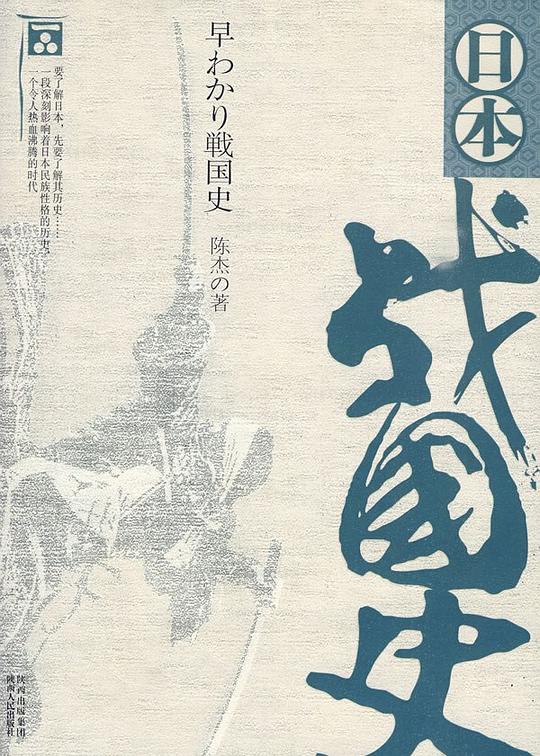 日本
战国史
早わかり戦国史
陈杰の著
要了解日本，先要了解其历史……
一段深刻影响着日本民族性格的历史，
一个令人热血沸腾的时代
陕西出版集团
陕西人民出版社